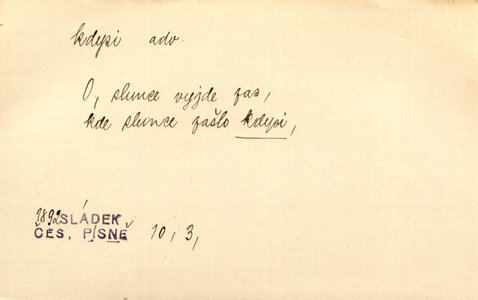 kdysi adv.
O, slunce vyjde zas,
kde slunce zašlo kdysi,
1892 SLÁDEK
ČES. PÍSNĚ 10, 3,